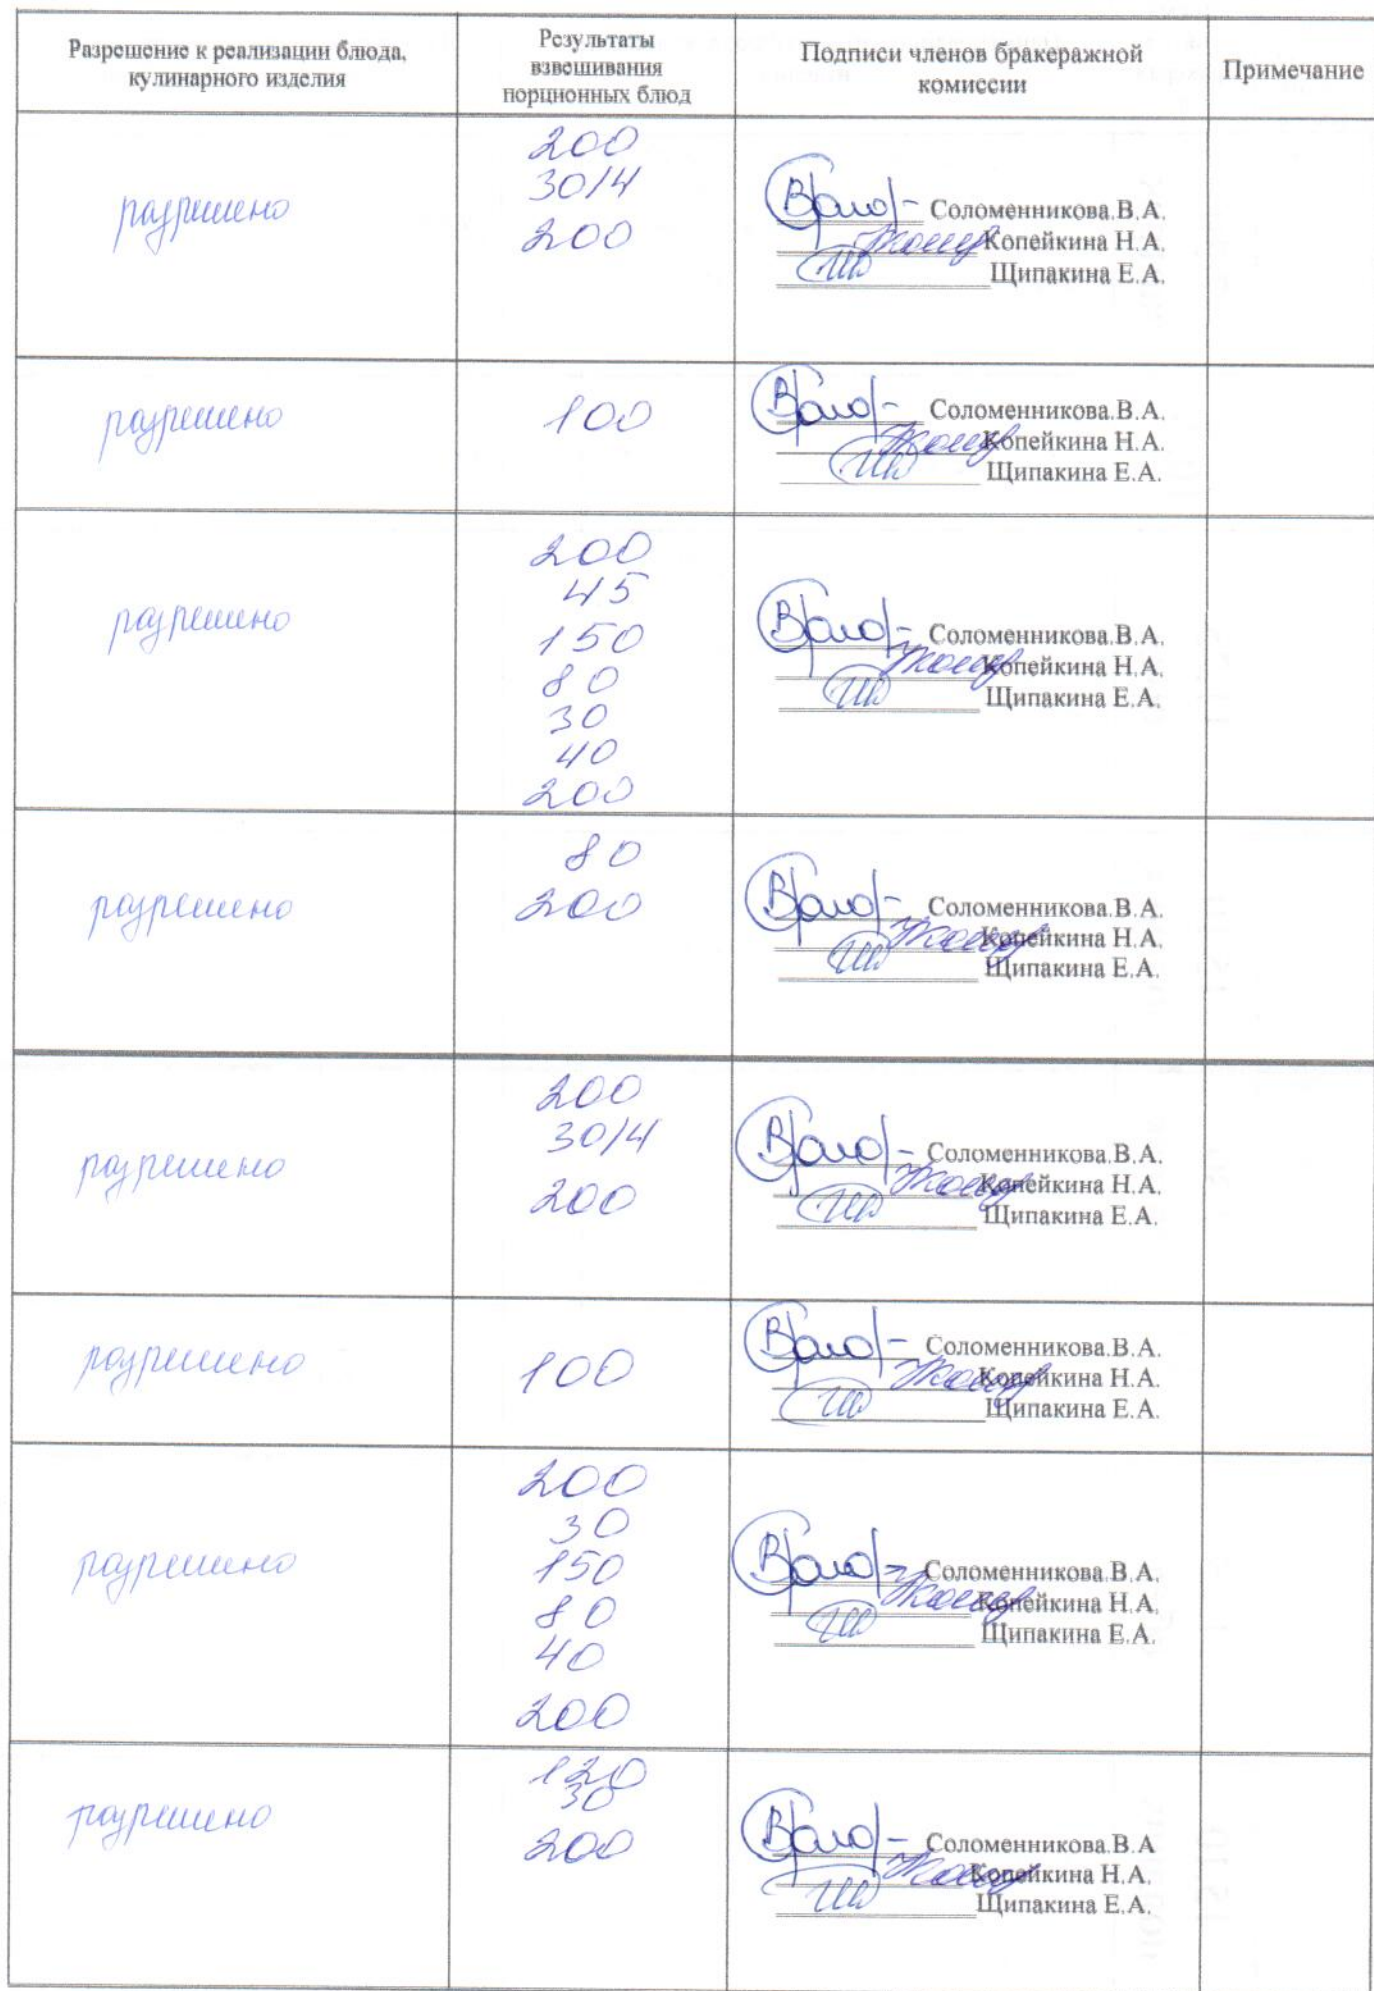 Разрешение к реализации блюда,
кулинарного изделия
Результаты
взвешивания
порционных блюд
Подписи членов бракеражной
комиссии
Примечание
разрешено
200
30/4
200
Соломенникова.В.А.
Копейкина Н.А.
Щипакина Е.А.
разрешено
100
Соломенникова.В.А.
Копейкина Н.А.
Щипакина Е.А.
разрешено
200
45
150
80
30
40
200
Соломенникова.В.А.
Копейкина Н.А.
Щипакина Е.А.
разрешено
80
200
Соломенникова.В.А.
Копейкина Н.А.
Щипакина Е.А.
разрешено
200
30/4
200
Соломенникова.В.А.
Копейкина Н.А.
Щипакина Е.А.
разрешено
100
Соломенникова.В.А.
Копейкина Н.А.
Щипакина Е.А.
разрешено
200
30
150
80
40
200
Соломенникова.В.А.
Копейкина Н.А.
Щипакина Е.А.
разрешено
120
30
200
Соломенникова.В.А
Копейкина Н.А.
Щипакина Е.А.